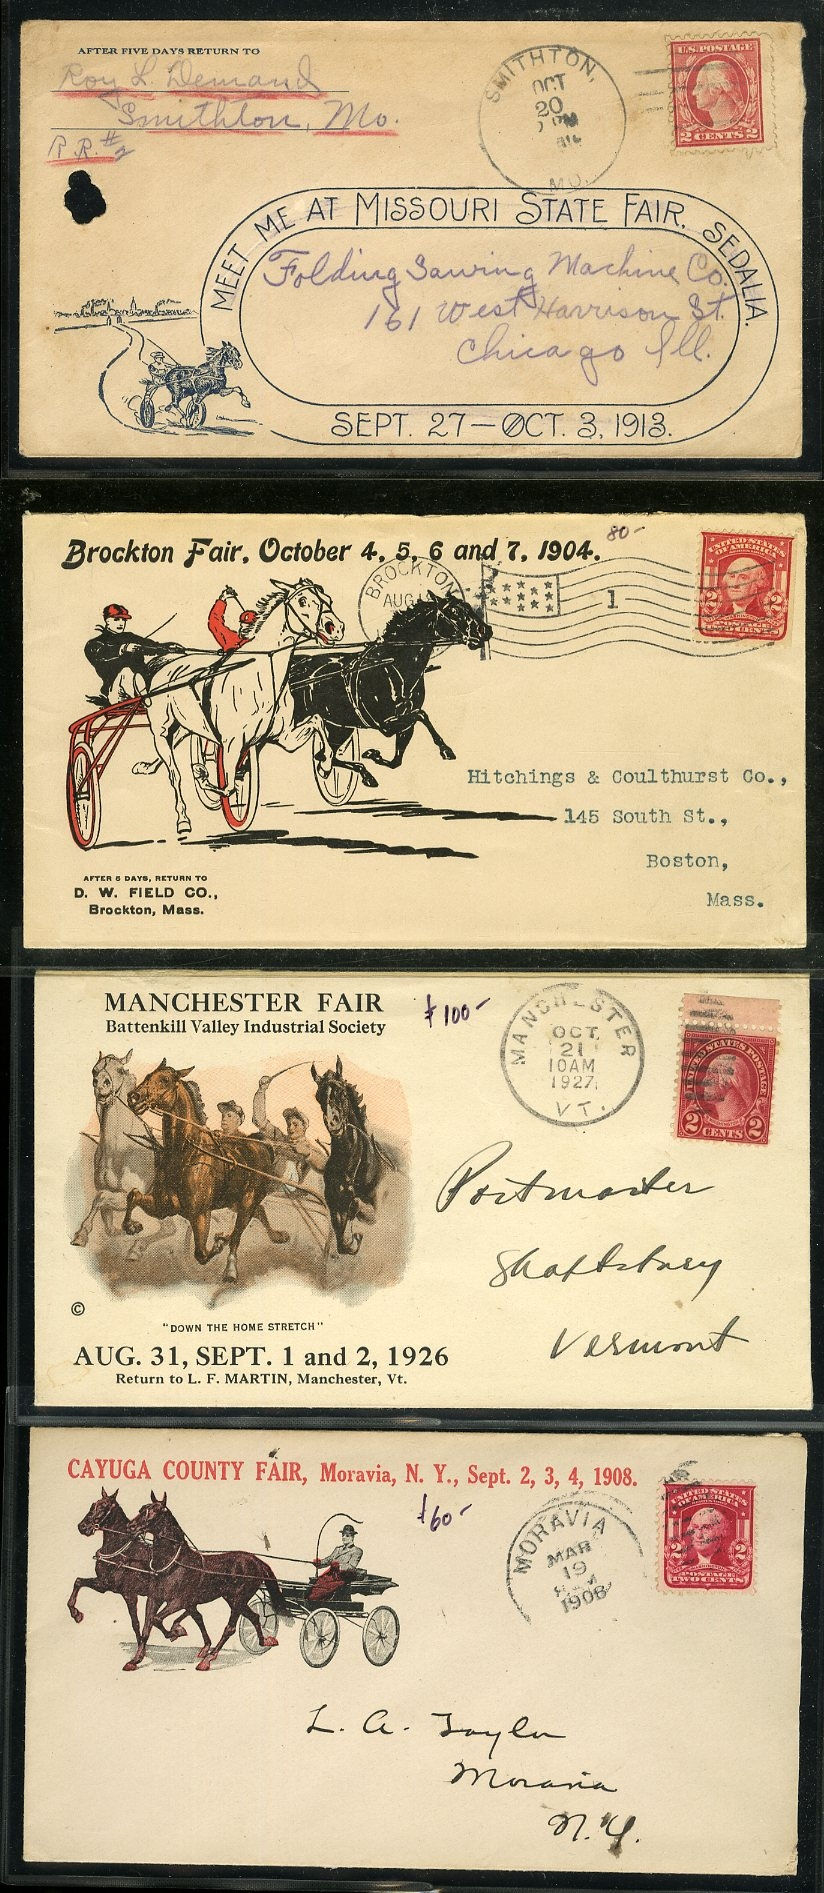 AFTER FIVE DAYS RETURN TO
Roy L. Demand
Smithton, Mo.
R.R.#2
SMITHTON,
OCT
20
PM
MO.
U.S. POSTAGE
2 CENTS 2
MEET ME AT MISSOURI STATE FAIR, SEDALIA.
Folding Sawing Machine Co.
161 West Harrison St.
Chicago Ill.
SEPT. 27 — OCT. 3, 1913.
Brockton Fair, October 4, 5, 6 and 7, 1904.
80-
BROCKTON
AUG
1
UNITED STATES
OF AMERICA
2 2
POSTAGE
TWO CENTS
Hitchings & Coulthurst Co.,
145 South St.,
Boston,
Mass.
AFTER 5 DAYS, RETURN TO
D. W. FIELD CO.,
Brockton, Mass.
MANCHESTER FAIR
Battenkill Valley Industrial Society
$100-
MANCHESTER
OCT.
21
10AM
1927
VT.
UNITED STATES POSTAGE
2 CENTS 2
Postmaster
Shaftsbury
Vermont
©
"DOWN THE HOME STRETCH"
AUG. 31, SEPT. 1 and 2, 1926
Return to L. F. MARTIN, Manchester, Vt.
CAYUGA COUNTY FAIR, Moravia, N. Y., Sept. 2, 3, 4, 1908.
$60-
MORAVIA
MAR
19
1908
UNITED STATES
OF AMERICA
2 2
POSTAGE
TWO CENTS
L. A. Taylor
Moravia
N.Y.